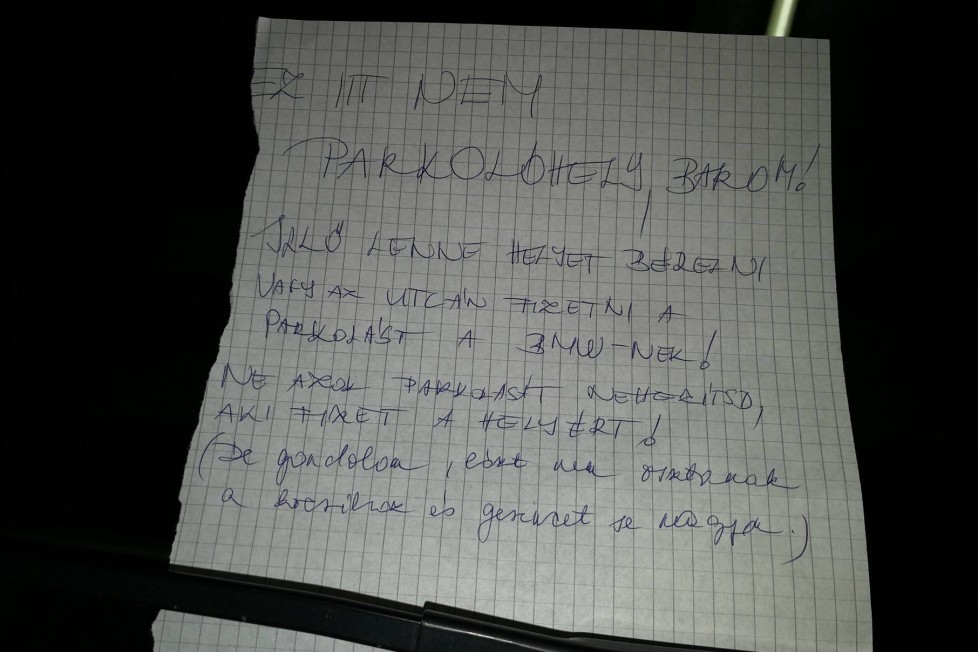 EZ ITT NEM
PARKOLÓHELY, BAROM!
ILLŐ LENNE HELYET BÉRELNI
VAGY AZ UTCÁN FIZETNI A
PARKOLÁST A BMW-NEK!
NE AZOK PARKOLÁSÁT NEHEZÍTSD,
AKI FIZET A HELYÉRT!
(De gondolom, észt nem osztanak
a és gerincet se